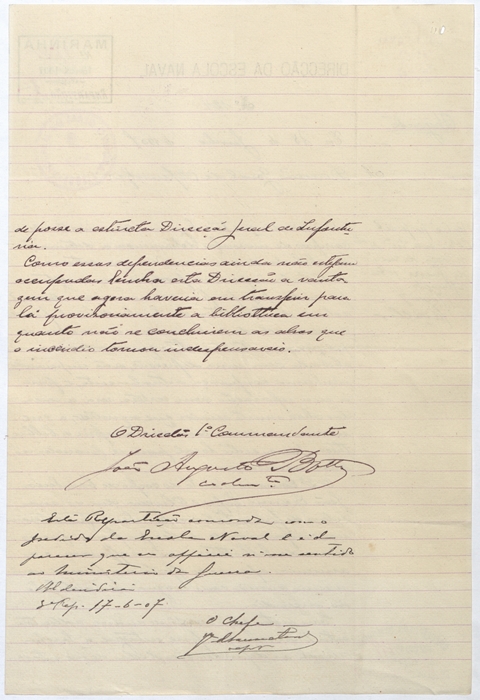 de posse a extincta Direcção Geral de Infante
ria.
Como essas dependencias ainda não estejam
occupadas lembra esta Direcção a vanta
gem que agora haveria em transferir para
lá provisoriamente a bibliotheca em
quanto não se concluirem as obras que
o incendio tornou indespensaveis.
O Director 1º Commandante
João Augusto Botto
Esta Repartição concorda com o
pedido da Escola Naval e é de
parecer que se officie n'esse sentido
ao Ministerio da Guerra.
3ª Rep. 17-6-07
O Chefe
DIRECÇÃO DA ESCOLA NAVAL
MARINHA